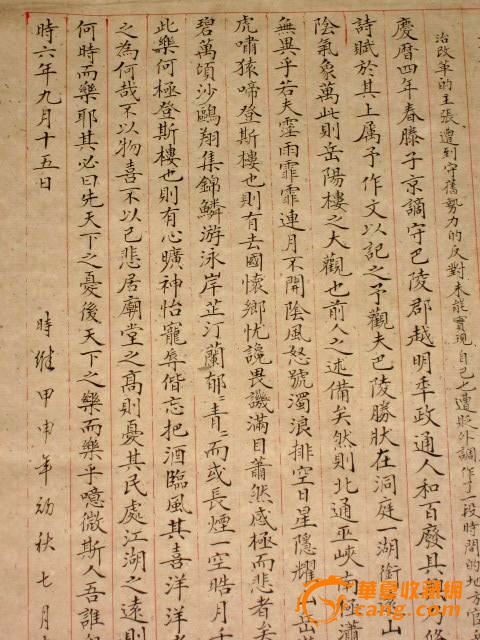 治改革的主張、遭到守舊勢力的反對未能實現、自己也遭貶外調、作了一段時間的地方官
慶曆四年春滕子京謫守巴陵郡越明年政通人和百廢具
詩賦於其上属予作文以記之予觀夫巴陵勝狀在洞庭一湖銜山
陰氣象萬此則岳陽樓之大觀也前人之述備矣然則北通巫峽瀟
無異乎若夫霪雨霏霏連月不開陰風怒號濁浪排空日星隱耀山岳
虎嘯猿啼登斯樓也則有去國懷鄉忧讒畏譏滿目蕭然感極而悲者矣
碧萬頃沙鷗翔集錦鱗游泳岸芷汀蘭郁〻青〻而或長煙一空皓月
此樂何極登斯樓也則有心曠神怡寵辱偕忘把酒臨風其喜洋洋
之為何哉不以物喜不以己悲居廟堂之高則憂其民處江湖之遠則
何時而樂耶其必曰先天下之憂後天下之樂而樂乎噫微斯人吾誰
時六年九月十五日
時維甲申年初秋七月
華夏收藏網
cang.com